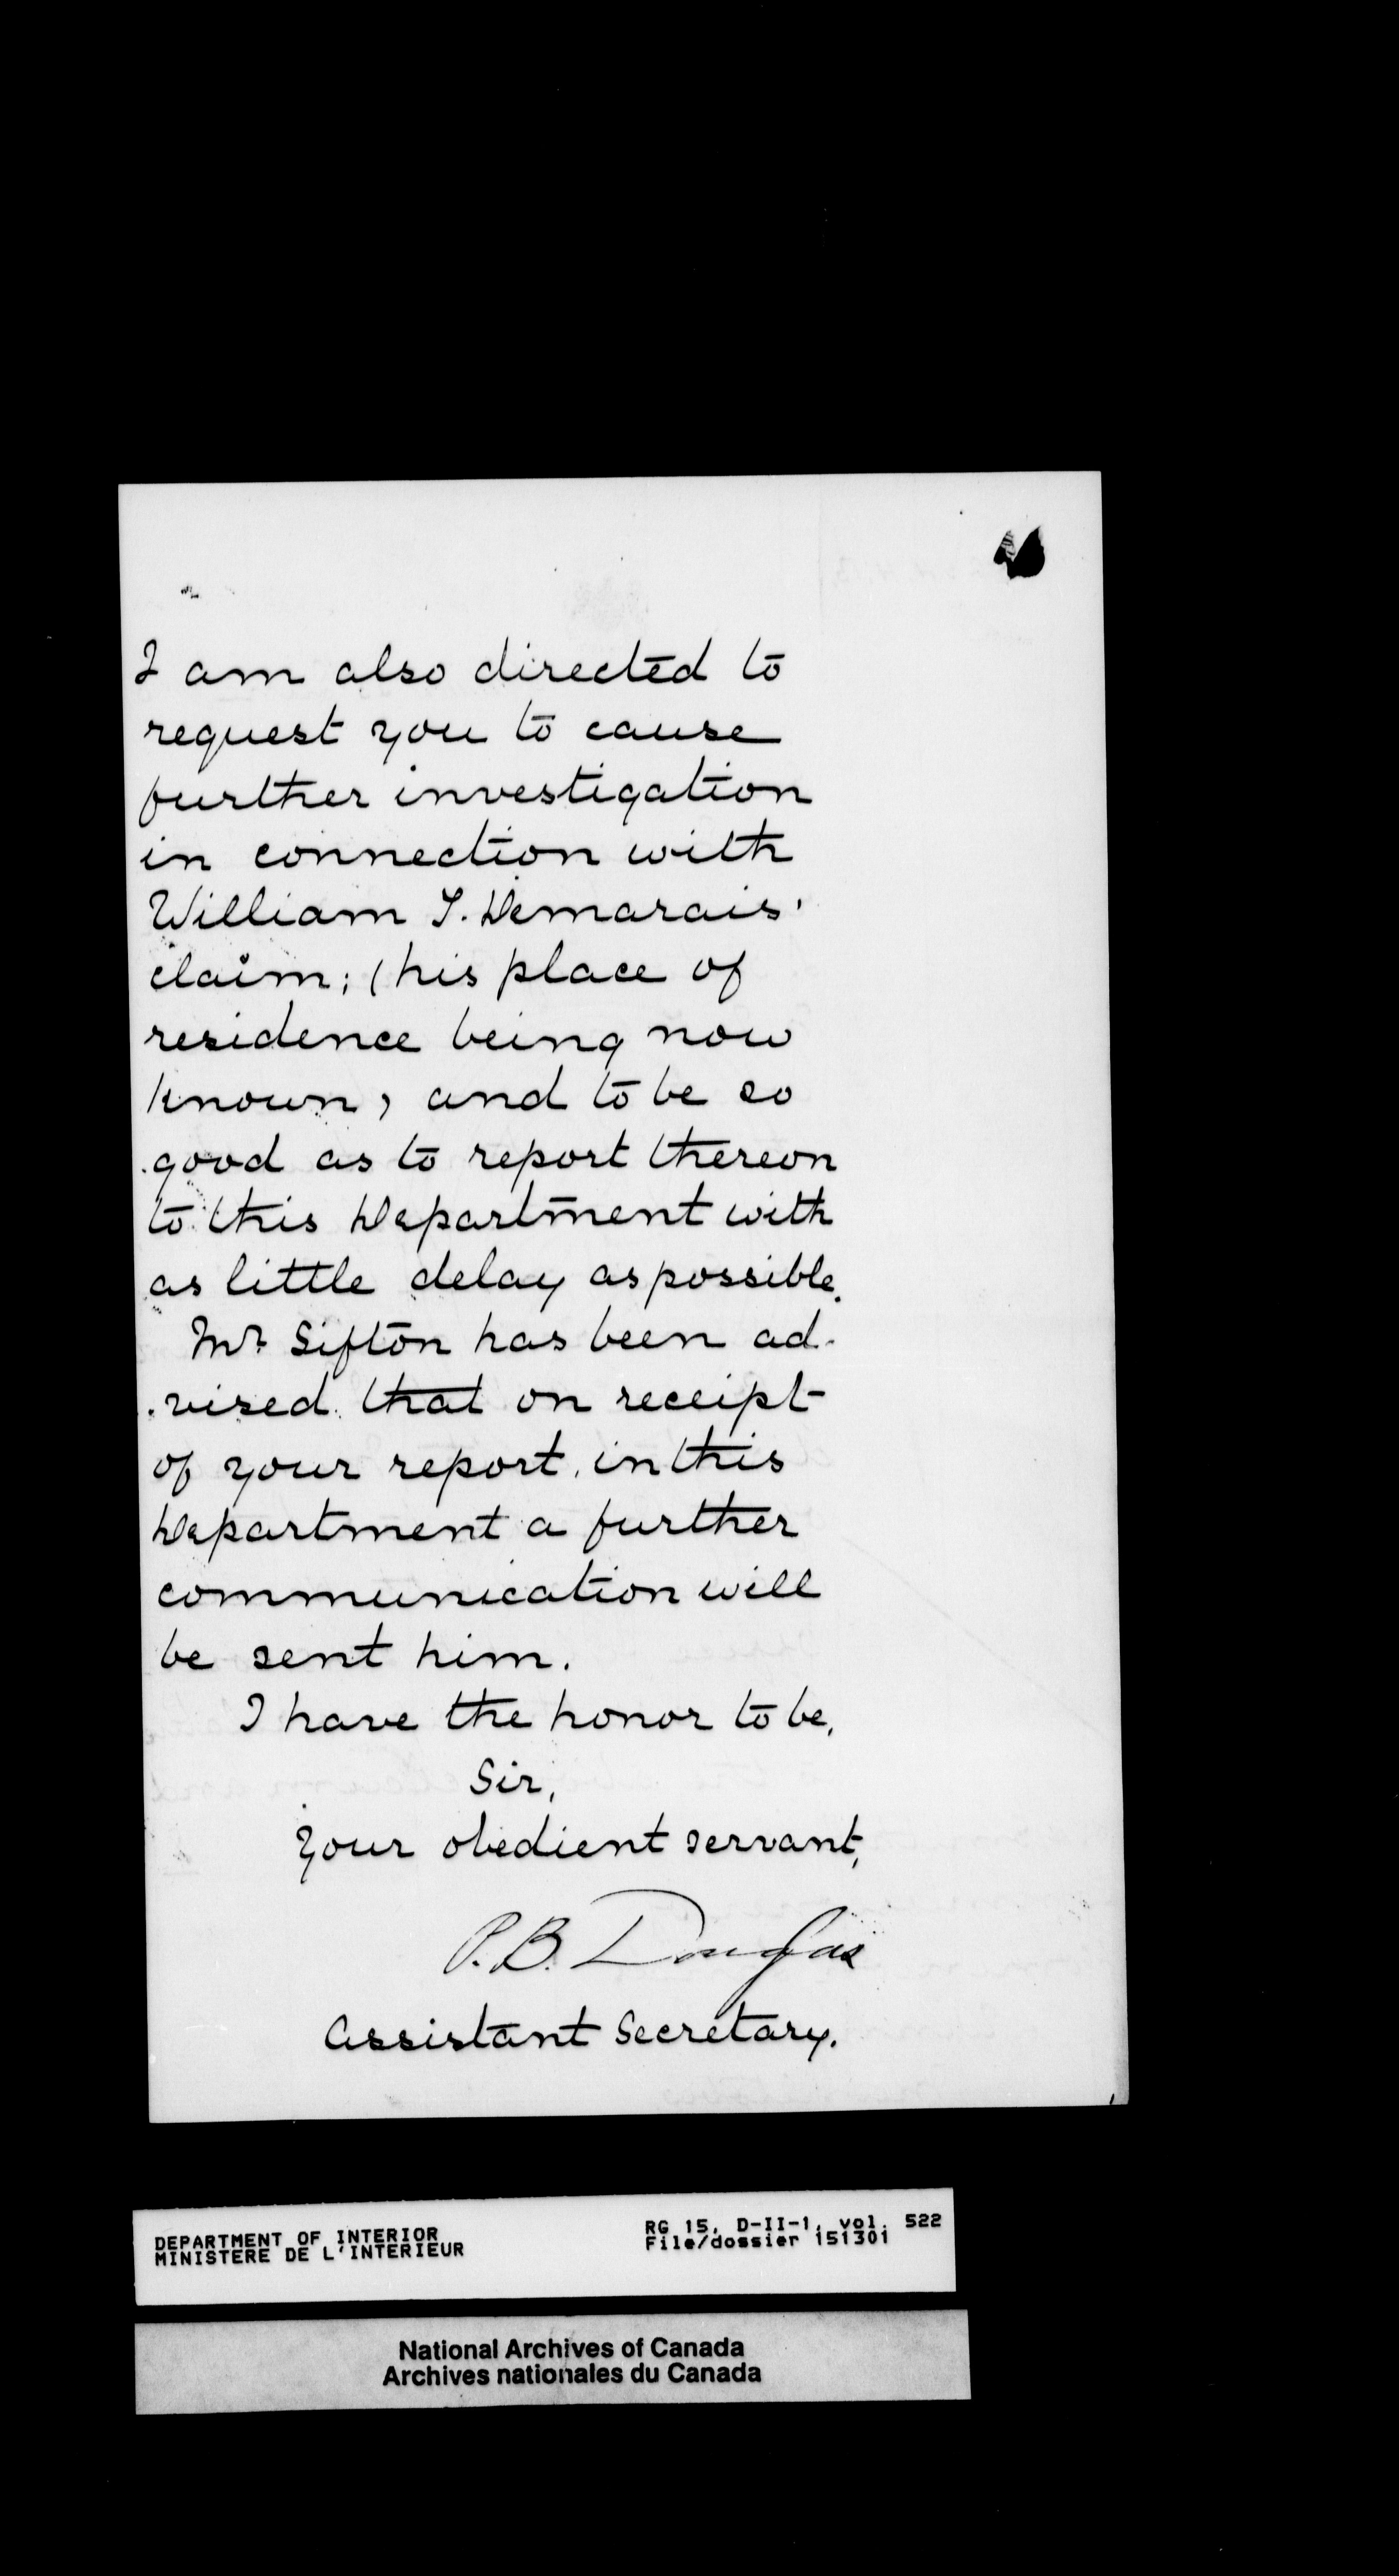 I am also directed to
request you to cause
further investigation
in connection with
William T. Demarais'
claim; (his place of
residence being now
known, and to be so
good as to report thereon
to this Department with
as little delay as possible.
Mr. Sifton has been ad-
vised that on receipt
of your report in this
Department a further
communication will
be sent him.
I have the honor to be,
Sir,
Your obedient servant,
P.B. Douglas
Assistant Secretary.
DEPARTMENT OF INTERIOR
MINISTERE DE L'INTERIEUR
RG 15, D-II-1, vol. 522
File/dossier 151301
National Archives of Canada
Archives nationales du Canada